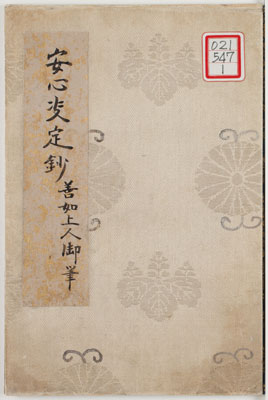 安心决定鈔
善如上人御筆
021
547
1